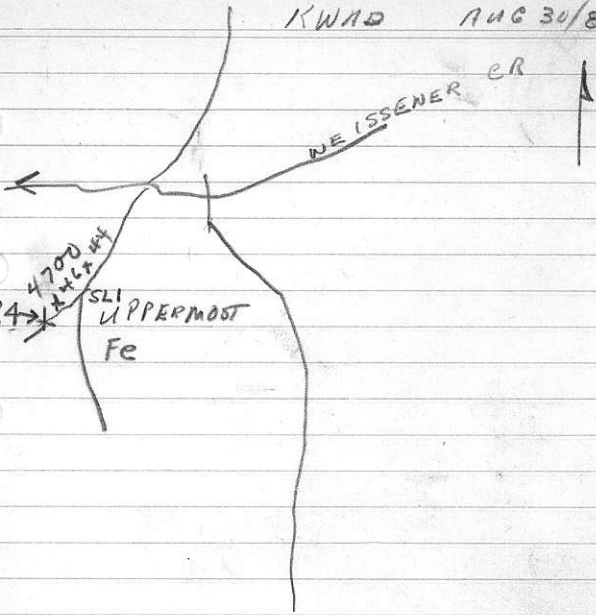 KWAD AUG 30/8
WEISSENER CR
4700
SLI
UPPERMOST
Fe